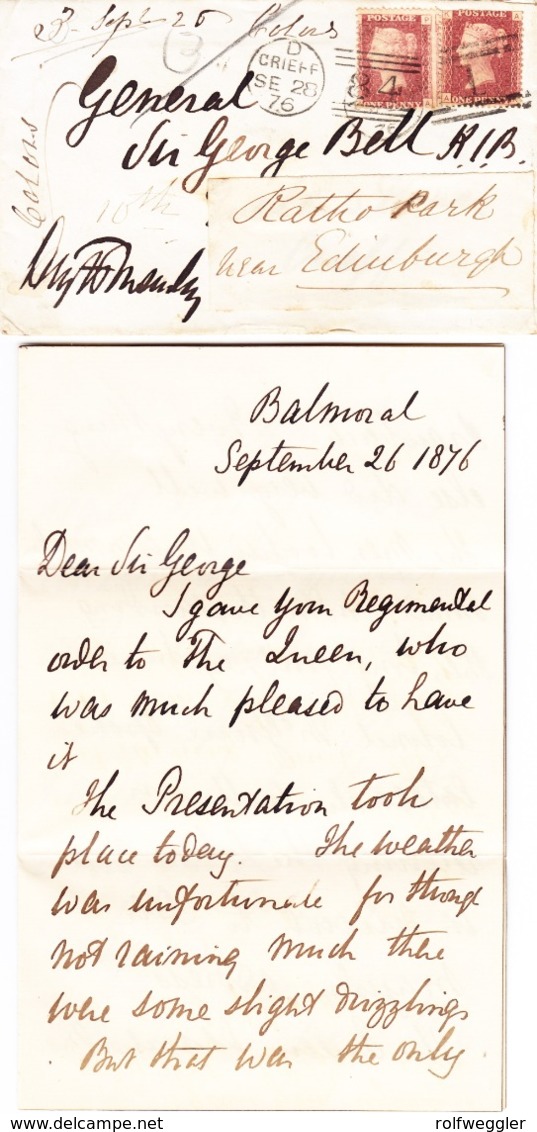 3. Sept 26 Colors
3
POSTAGE
POSTAGE
ONE PENNY
ONE PENNY
D
CRIEFF
SE 28
76
84
1
General
Sir George Bell K.C.B.
Colors
10th
Ratho Park
near Edinburgh
Balmoral
September 26 1876
Dear Sir George
I gave your Regimental
order to The Queen, who
was much pleased to have
it
The Presentation took
place today. The weather
was unfortunate for though
not raining much there
were some slight drizzlings
But that was the only
delcampe.net
rolfweggler